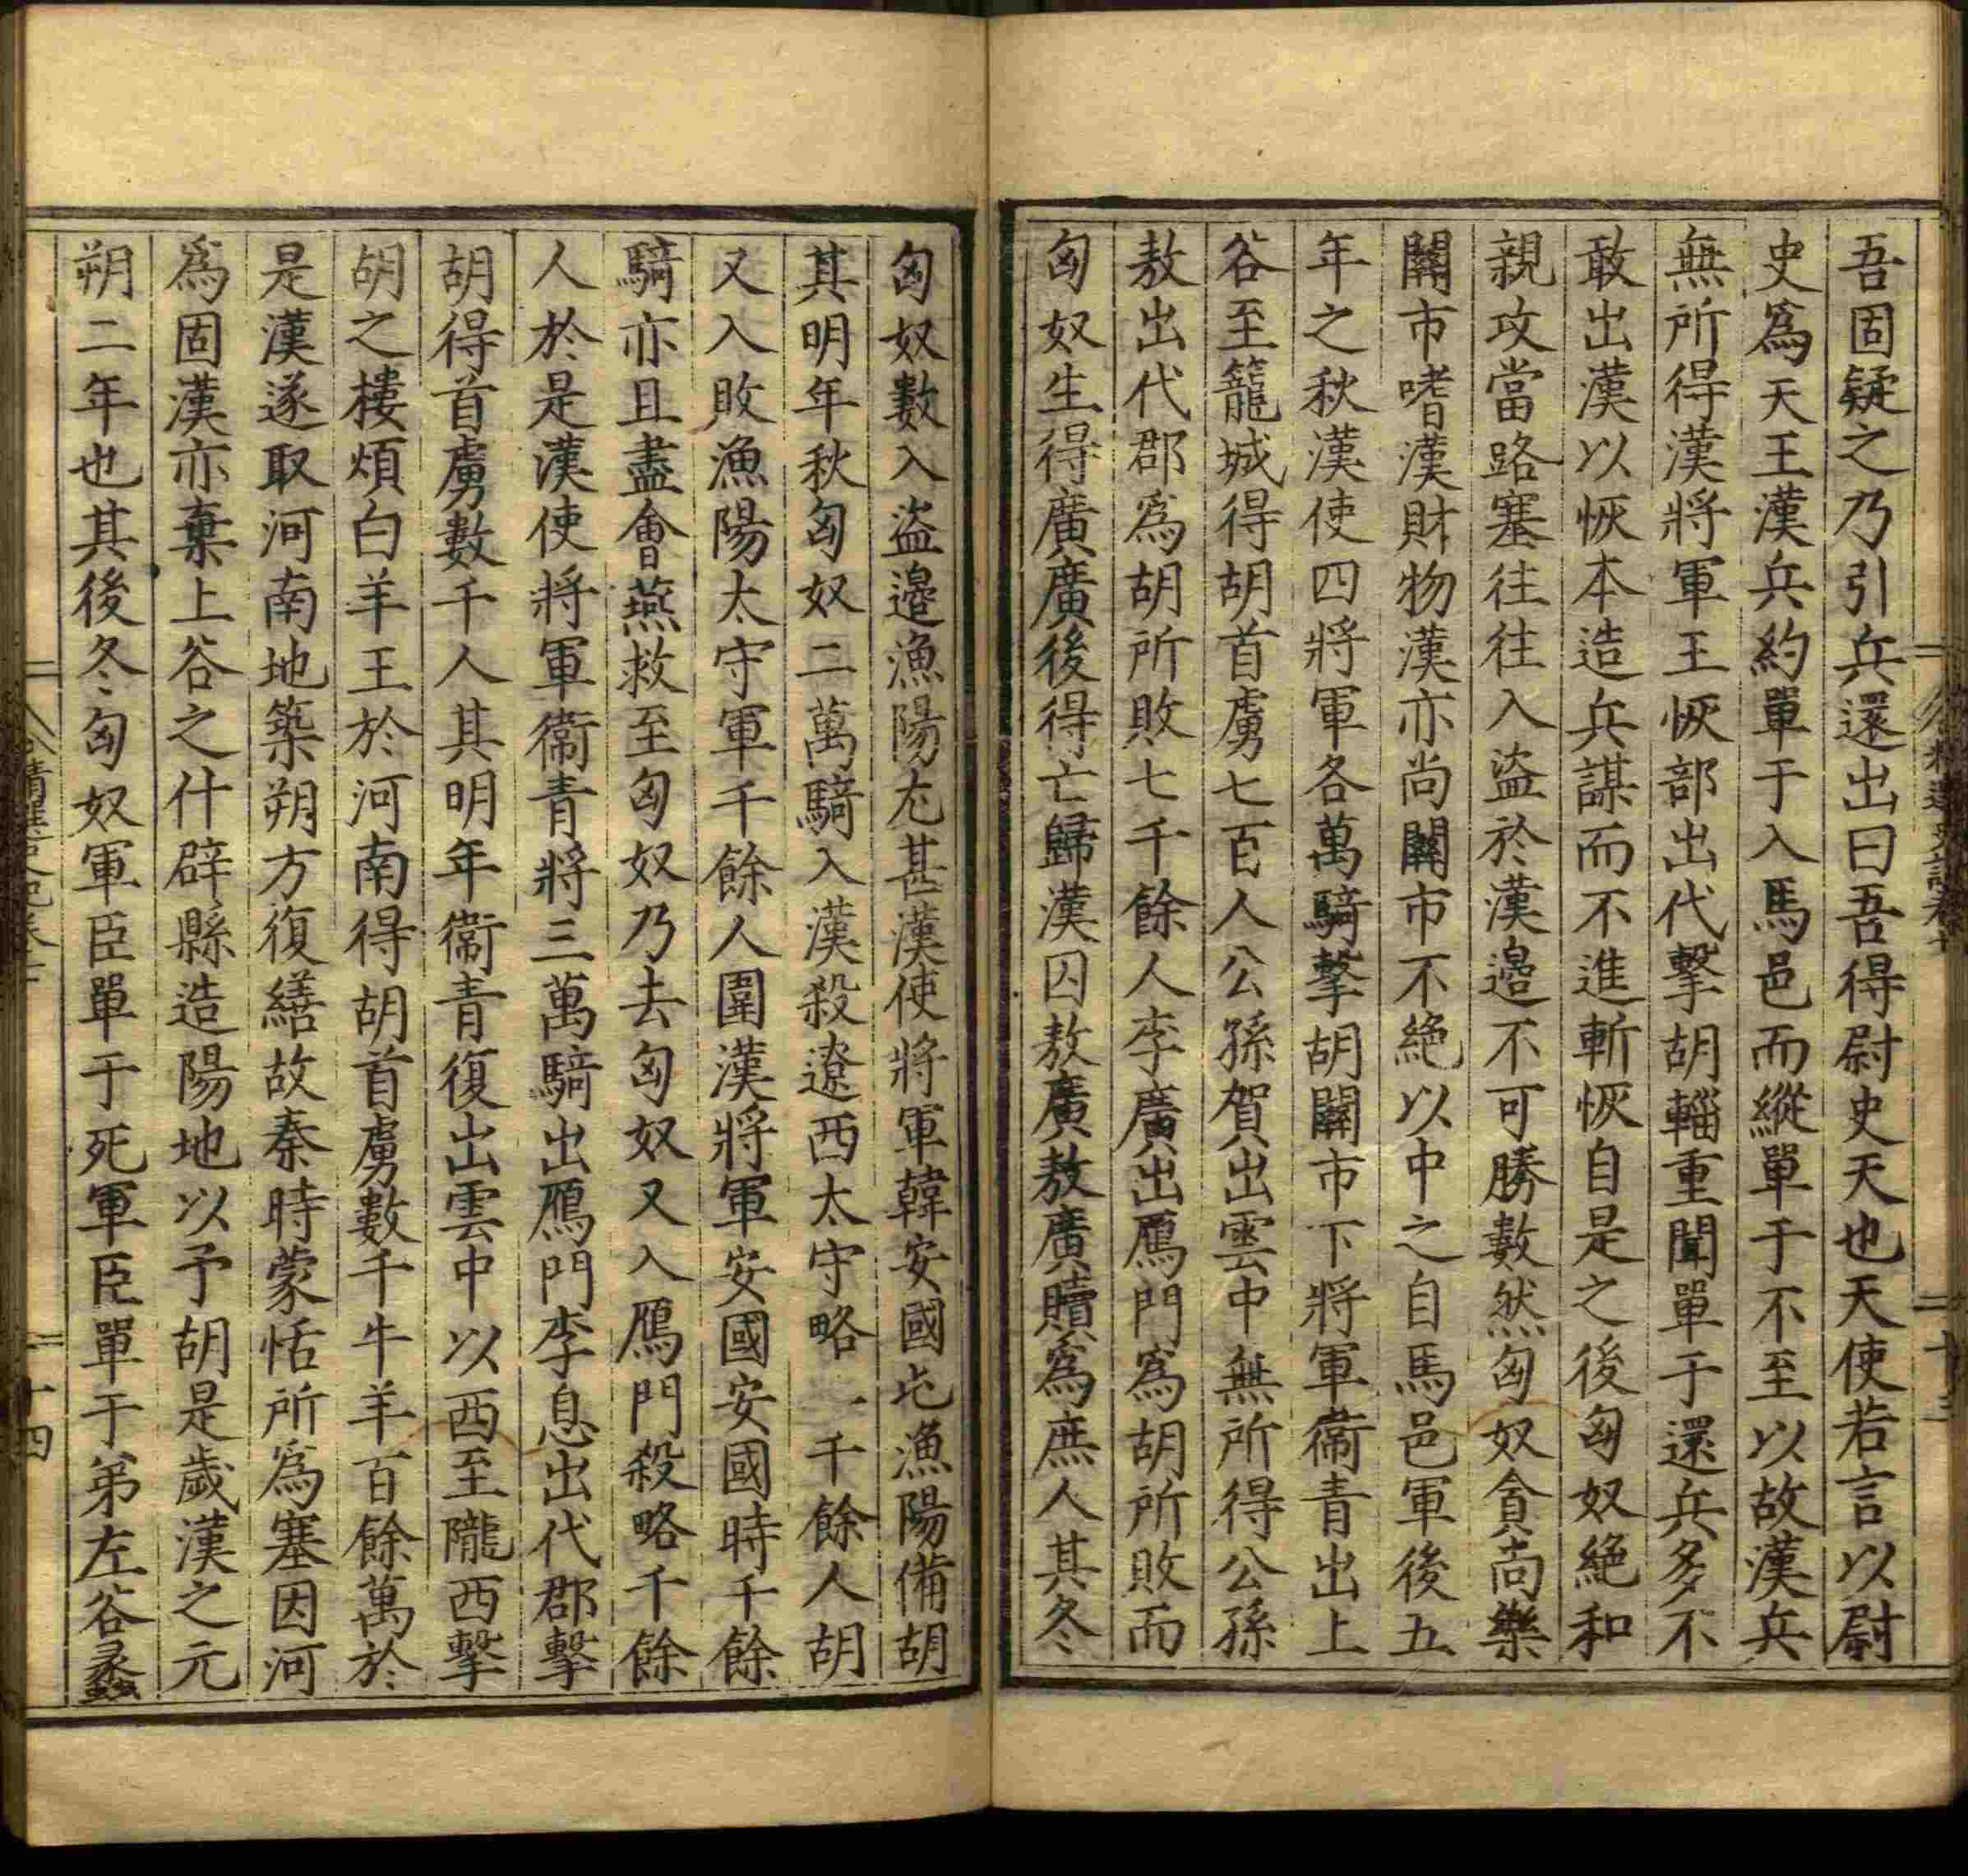 吾固疑之乃引兵還出曰吾得尉史天也天使若言以尉
史爲天王漢兵約單于入馬邑而縱單于不至以故漢兵
無所得漢將軍王恢部出代擊胡輜重聞單于還兵多不
敢出漢以恢本造兵謀而不進斬恢自是之後匈奴絶和
親攻當路塞往往入盗於漢邉不可勝數然匈奴貪尚樂
關市嗜漢財物漢亦尚關市不絶以中之自馬邑軍後五
年之秋漢使四將軍各萬騎擊胡關市下將軍衞青出上
谷至籠城得胡首虜七百人公孫賀出雲中無所得公孫
敖出代郡爲胡所敗七千餘人李廣出鴈門爲胡所敗而
匈奴生得廣廣後得亡歸漢囚敖廣敖廣贖爲庶人其冬
匈奴數入盗邉漁陽尤甚漢使將軍韓安國屯漁陽備胡
其明年秋匈奴二萬騎入漢殺遼西太守略二千餘人胡
又入敗漁陽太守軍千餘人圍漢將軍安國安國時千餘
騎亦且盡會燕救至匈奴乃去匈奴又入鴈門殺略千餘
人於是漢使將軍衞青將三萬騎出鴈門李息出代郡擊
胡得首虜數千人其明年衞青復出雲中以西至隴西擊
胡之樓煩白羊王於河南得胡首虜數千牛羊百餘萬於
是漢遂取河南地築朔方復繕故秦時蒙恬所爲塞因河
爲固漢亦棄上谷之什辟縣造陽地以予胡是歲漢之元
朔二年也其後冬匈奴軍臣單于死軍臣單于弟左谷蠡
十四